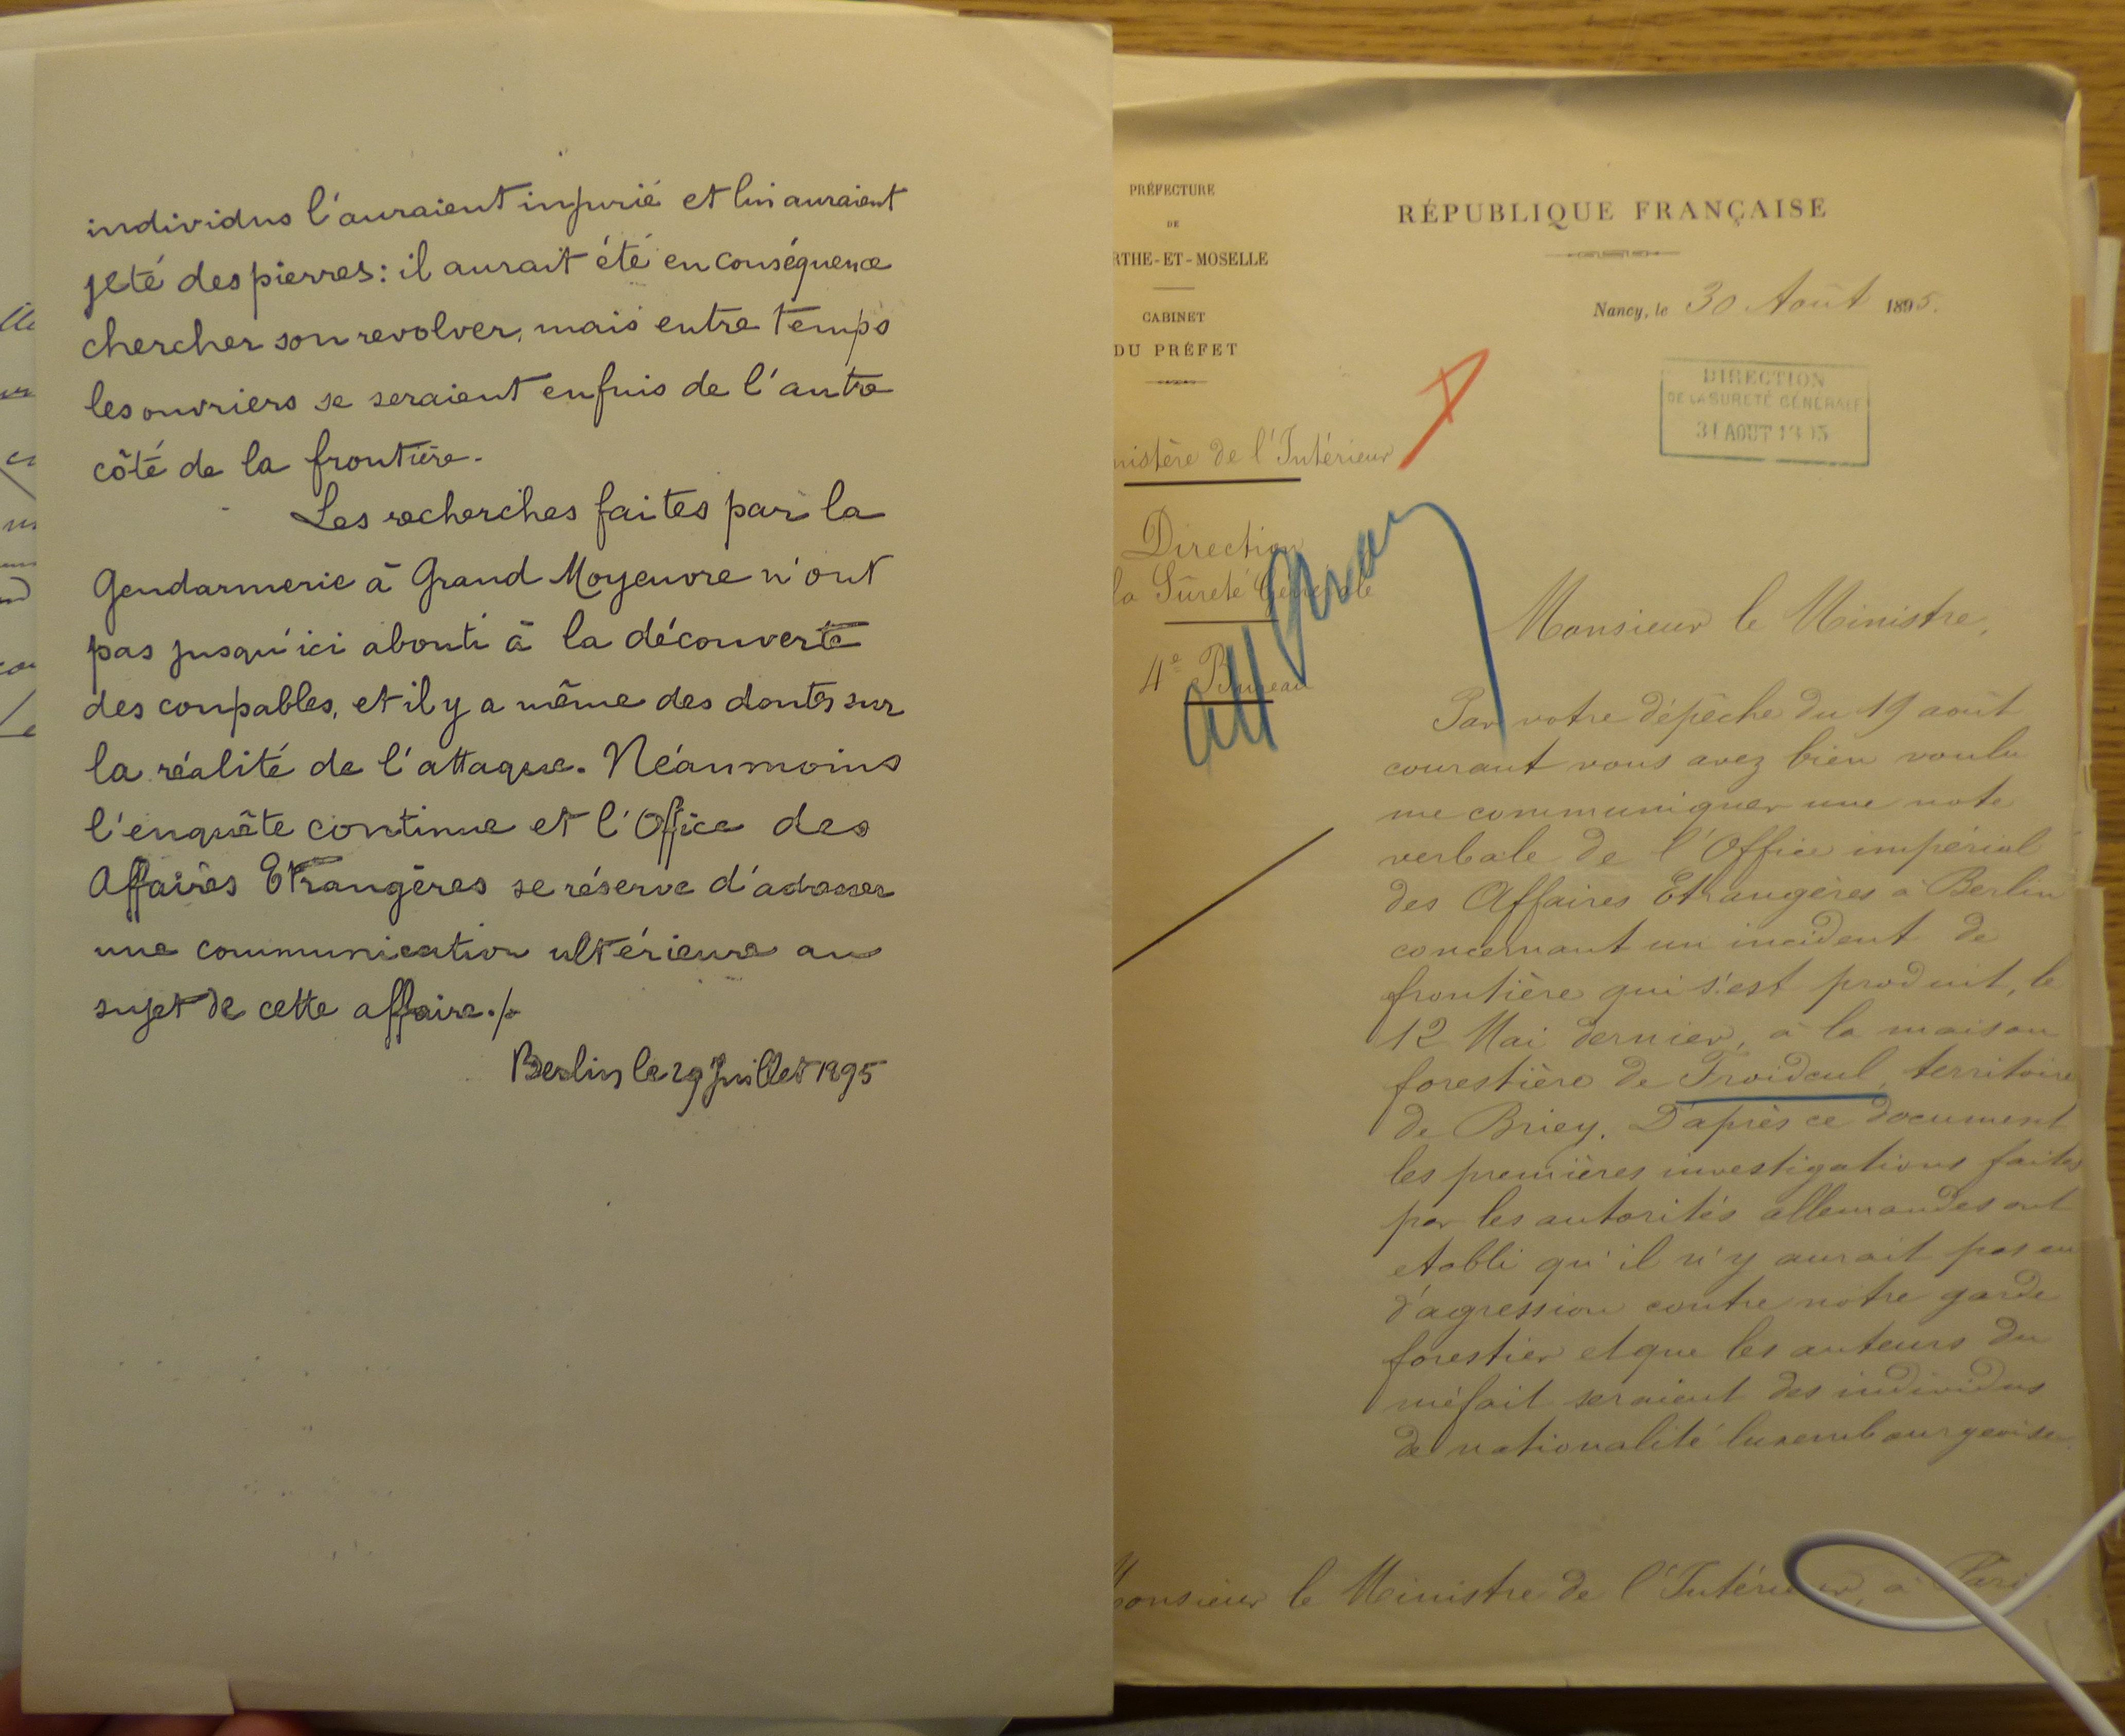 individus l'auraient injurié et lui auraient
jeté des pierres: il aurait été en conséquence
chercher son revolver, mais entre temps
les ouvriers se seraient enfuis de l'autre
côté de la frontière.
Les recherches faites par la
Gendarmerie à Grand Moyeuvre n'ont
pas jusqu'ici abouti à la découverte
des coupables, et il y a même des doutes sur
la réalité de l'attaque. Néanmoins
l'enquête continue et l'Office des
Affaires Etrangères se réserve d'adresser
une communication ultérieure au
sujet de cette affaire./.
Berlin le 29 Juillet 1895
PRÉFECTURE
DE
RTHE-ET-MOSELLE
CABINET
DU PRÉFET
nistère de l'Intérieur
Direction
la Sûreté Générale
4e Bureau
all
RÉPUBLIQUE FRANÇAISE
Nancy, le 30 Août 1895.
DIRECTION
DE LA SURETÉ GÉNÉRALE
31 AOUT 1895
Monsieur le Ministre,
Par votre dépêche du 19 août
courant vous avez bien voulu
me communiquer une note
verbale de l'Office impérial
des Affaires Etrangères à Berlin
concernant un incident de
frontière qui s'est produit, le
12 Mai dernier, à la maison
forestière de Froidcul, territoire
de Briey. D'après ce document
les premières investigations faites
par les autorités allemandes ont
etabli qu'il n'y aurait pas eu
d'agression contre notre garde
forestier et que les auteurs du
méfait seraient des individus
de nationalité luxembourgeoise.
Monsieur le Ministre de l'Intérieur, à Paris